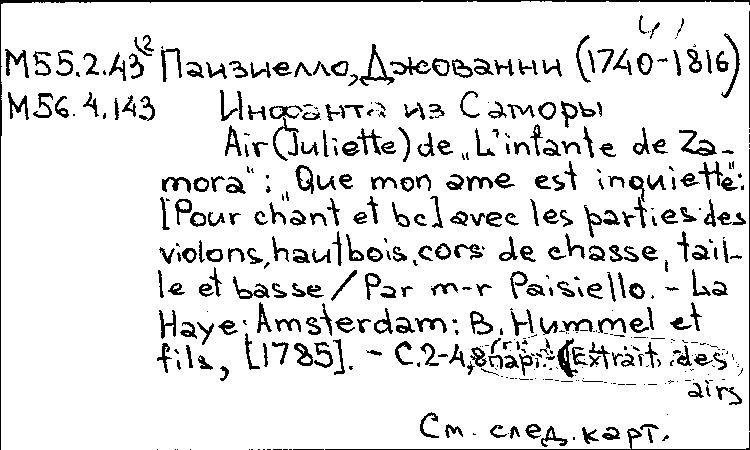 М55.2.43(2 Паизиелло, Джованни (1740-1816)
М56.4.143 Инфанта из Саморы
Air (Juliette) de „L'infante de Za-
mora“: „Que mon ame est inquiette“:
[Pour chant et bc] avec les parties des
violons, hautbois, cors de chasse, tail-
le et basse / Par m-r Paisiello. - La
Haye; Amsterdam: B. Hummel et
fils, [1785]. - С. 2-4, 8 пар. (Extrait des
airs
См. след. карт.